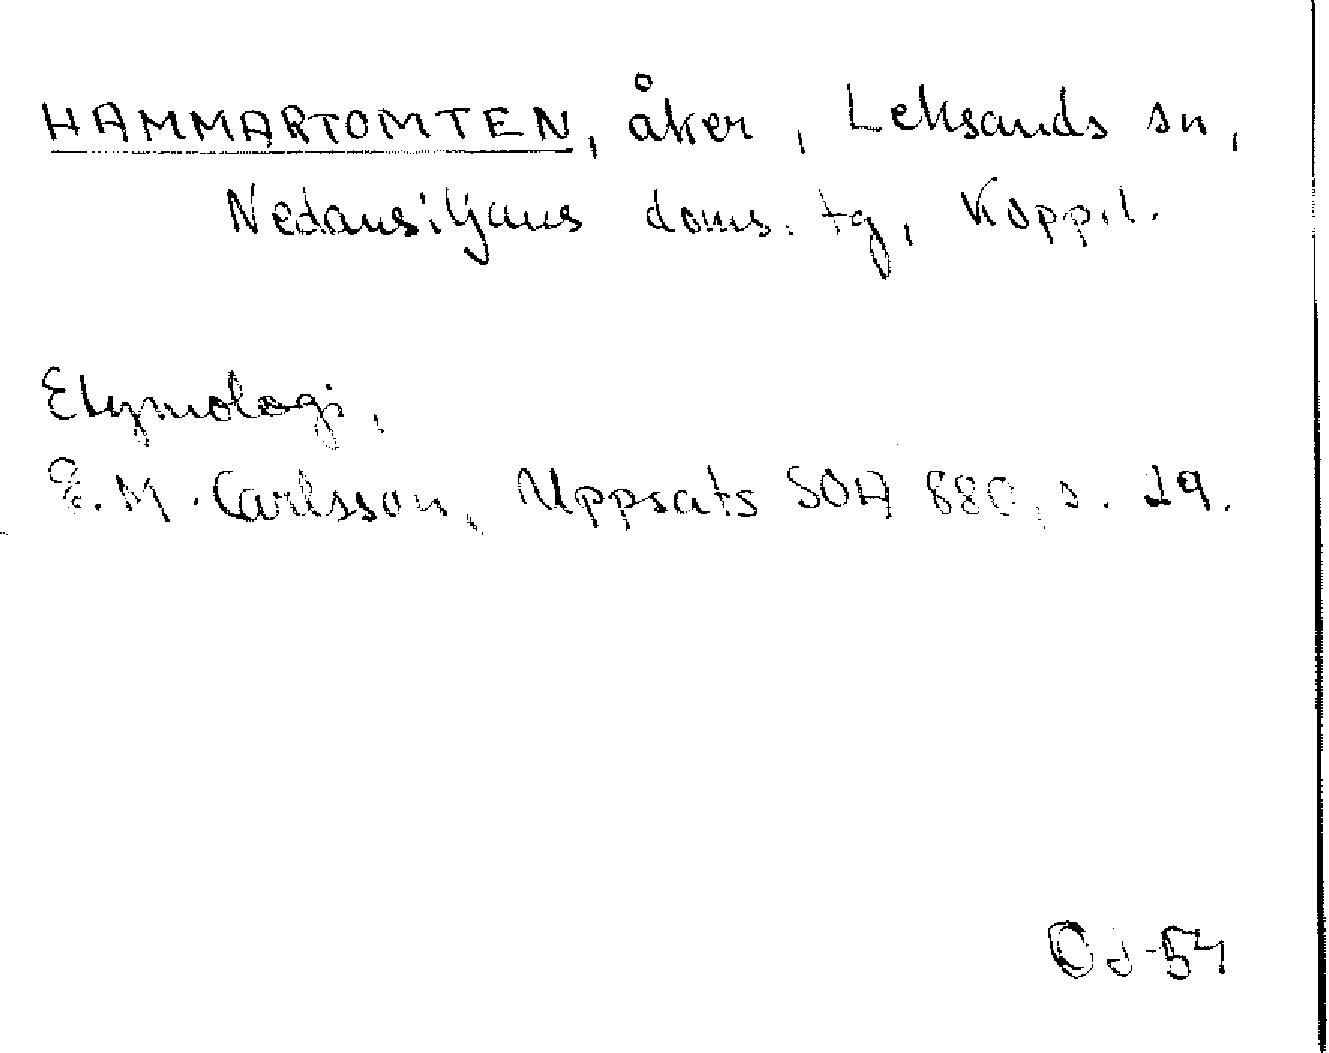 HAMMARTOMTEN, åker, Leksands sn,
Nedansiljans doms. tg, Kopp.l.
Etymologi,
E.M. Carlsson, Uppsats SOA 880, s. 29.
OJ-54